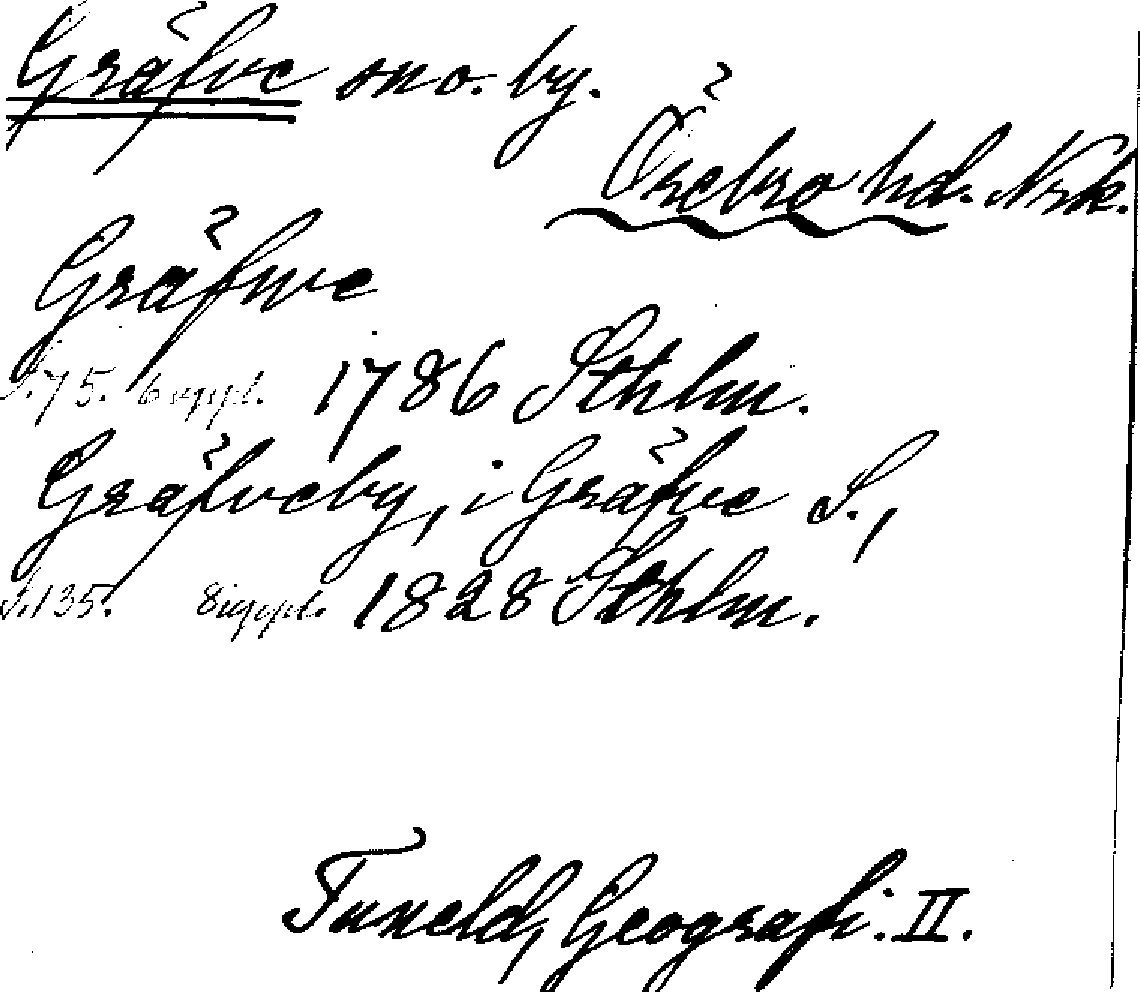 Gräfve sno. by.
Örebro hd. Nrk.
Gräfwe
S. 75. 6 uppl. 1786 Sthlm.
Gräfveby, i Gräfve S.,
S. 135. 8 uppl. 1828 Sthlm.
Tunelds Geografi. II.